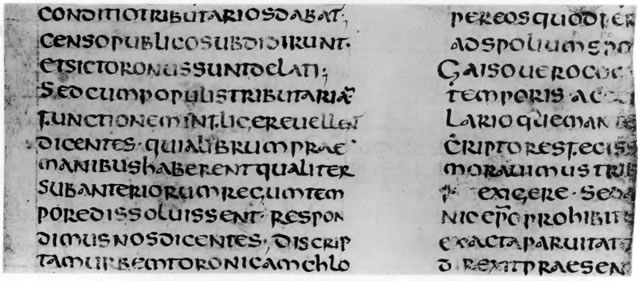 CONDITIOTRIBUTARIOSDABAT,
CENSOPUBLICOSUBDIDIRUNT·
ETSICTORONUSSUNTDELATI;
SEDCUMPOPULISTRIBUTARIÃ
FUNCTIONEMINFLIGEREUELLENT
DICENTES· QUIALIBRUMPRAE
MANIBUSHABERENTQUALITER
SUBANTERIORUMREGUMTEM
POREDISSOLUISSENT· RESPON
DIMUSNOSDICENTES·, DISCRIP
TAMURBEMTORONICAMCHLO
PEREOSQUODPER
ADSPOLIUM
GAISOUEROCO
TEMPORIS· AC
LARIOQUEMAN
CRIPTORESFECISS
MORAUIMUSTRIB
EXIGERE· SEDA
NICEP̃OPROHIBIT
EXACTAPARUITAT
DIREXITPRAESEN